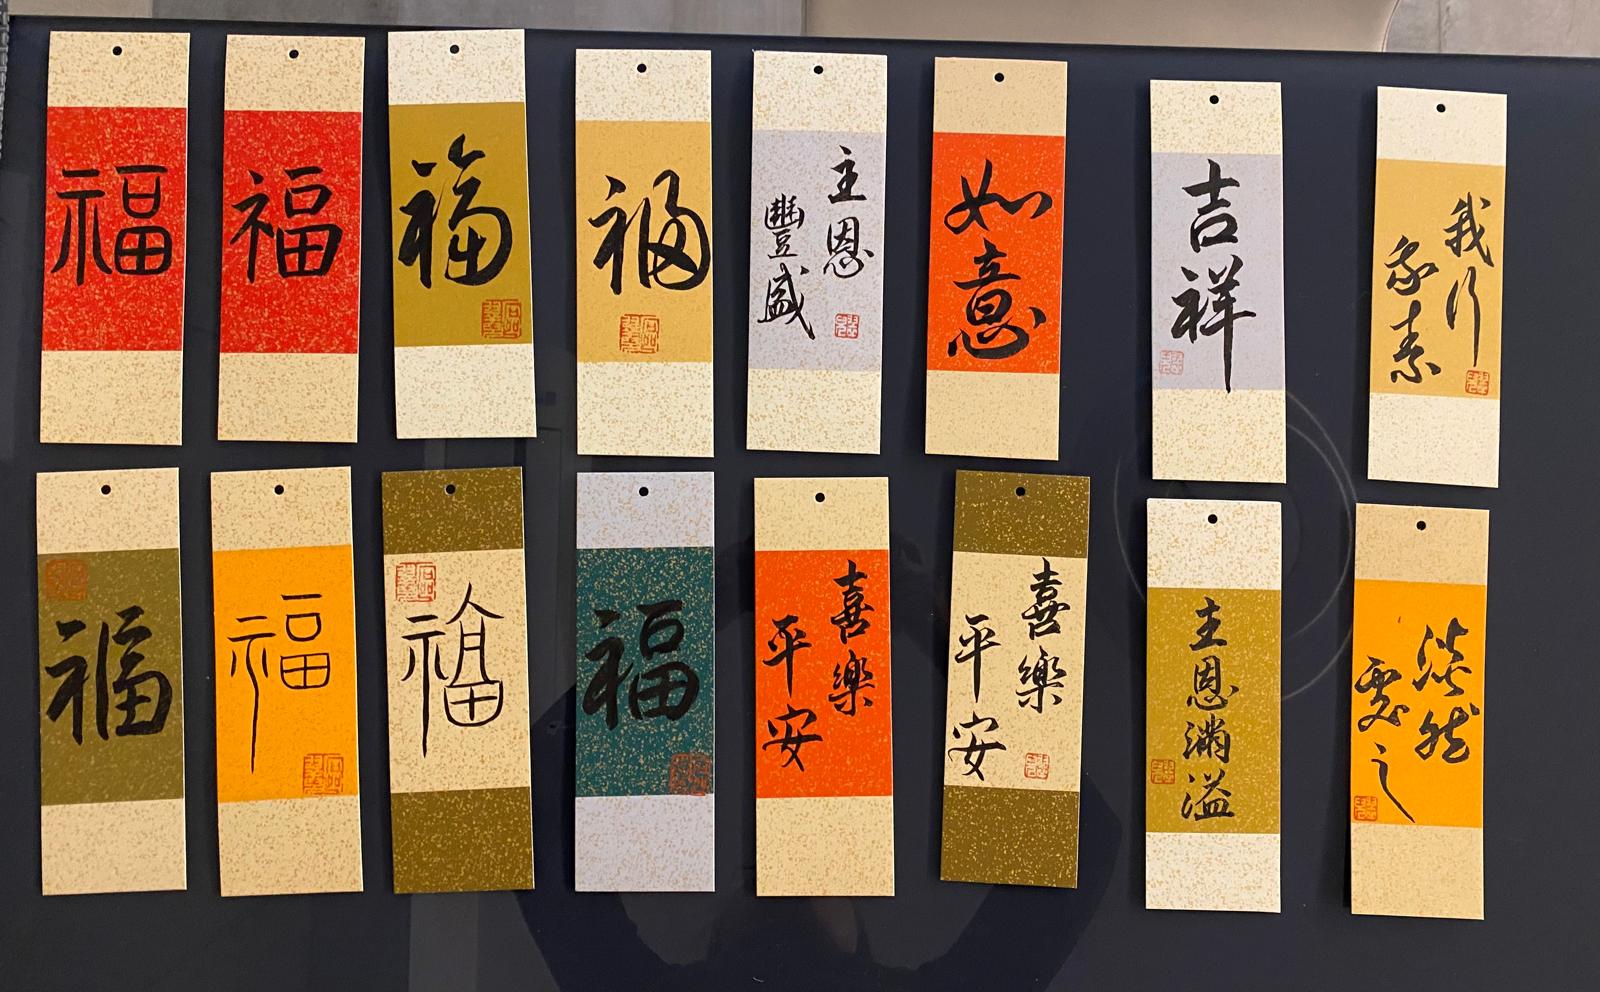 福
福
福
福
主恩
豐盛
如意
吉祥
我行
我素
福
福
福
福
喜樂
平安
喜樂
平安
主恩滿溢
淡然
處之